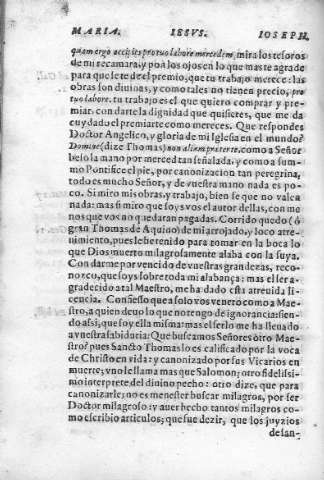 MARIA. IESVS. IOSEPH.
quam ergo accipies pro tuo labore mercedem, mira los tesoros
de mi recamara, y pon los ojos en lo que mas te agrade
para que te de el premio, que tu trabajo merece: las
obras son diuinas, y como tales no tienen precio, pro
tuo labore. tu trabajo es el que quiero comprar y pre-
miar. con darte la dignidad que quisieres, que me da
cuydado el premiarte como mereces. Que respondes
Doctor Angelico, y gloria de mi Iglesia en el mundo?
Domine (dize Thomas) non aliam præter te. como a Señor
beso la mano por merced tan señalada, y como a sum-
mo Pontifice el pie, por canonizacion tan peregrina,
todo es mucho Señor, y de vuestra mano nada es po-
co. Si miro mis obras, y trabajo, bien se que no valen
nada: mas si miro que soys vos el autor dellas, con me
nos que vos no quedaran pagadas. Corrido quedo (ô
gran Thomas de Aquino) de mi arrojado, y loco atre-
uimiento, pues le he tenido para tomar en la boca lo
que Dios muerto milagrosamente alaba con la suya.
Con darme por vencido de vuestras grandezas, reco-
nozco, que soys sobre toda mi alabança: mas el ser a-
gradecido a tal Maestro, me ha dado esta atreuida li-
cencia. Confiesso que a solo vos venero como a Mae-
stro, a quien deuo lo que no tengo de ignorancia: sien-
do assi, que soy ella misma: mas el serlo me ha lleuado
a vuestra sabiduria: Que buscamos Señores otro Mae-
stro? pues Sancto Thomas lo es calificado por la voca
de Christo en vida: y canonizado por sus Vicarios en
muerte; vno le llama mas que Salomon; otro fidelissi-
mo interprete del diuino pecho: otro dize, que para
canonizarle; no es menester buscar milagros, por ser
Doctor milagroso: y auer hecho tantos milagros co-
mo escribio articulos; que fue dezir, que los juyzios
desan-